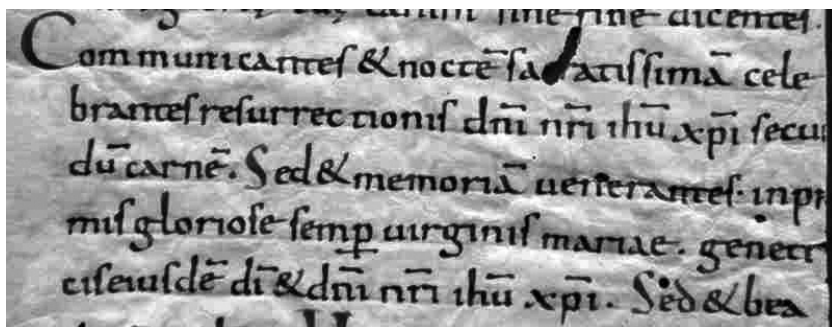 sine fine dicentes.
Communicantes & noctē sa atissimā cele
brantes resurrectionis dn̄i nr̄i ihū xp̄i secun
dū carnē. Sed & memoriā uenerantes. inpri
mis gloriose semp̲ uirginis mariae. genetri
cis eiusdē dī & dn̄i nr̄i ihū xp̄i. Sed & bea